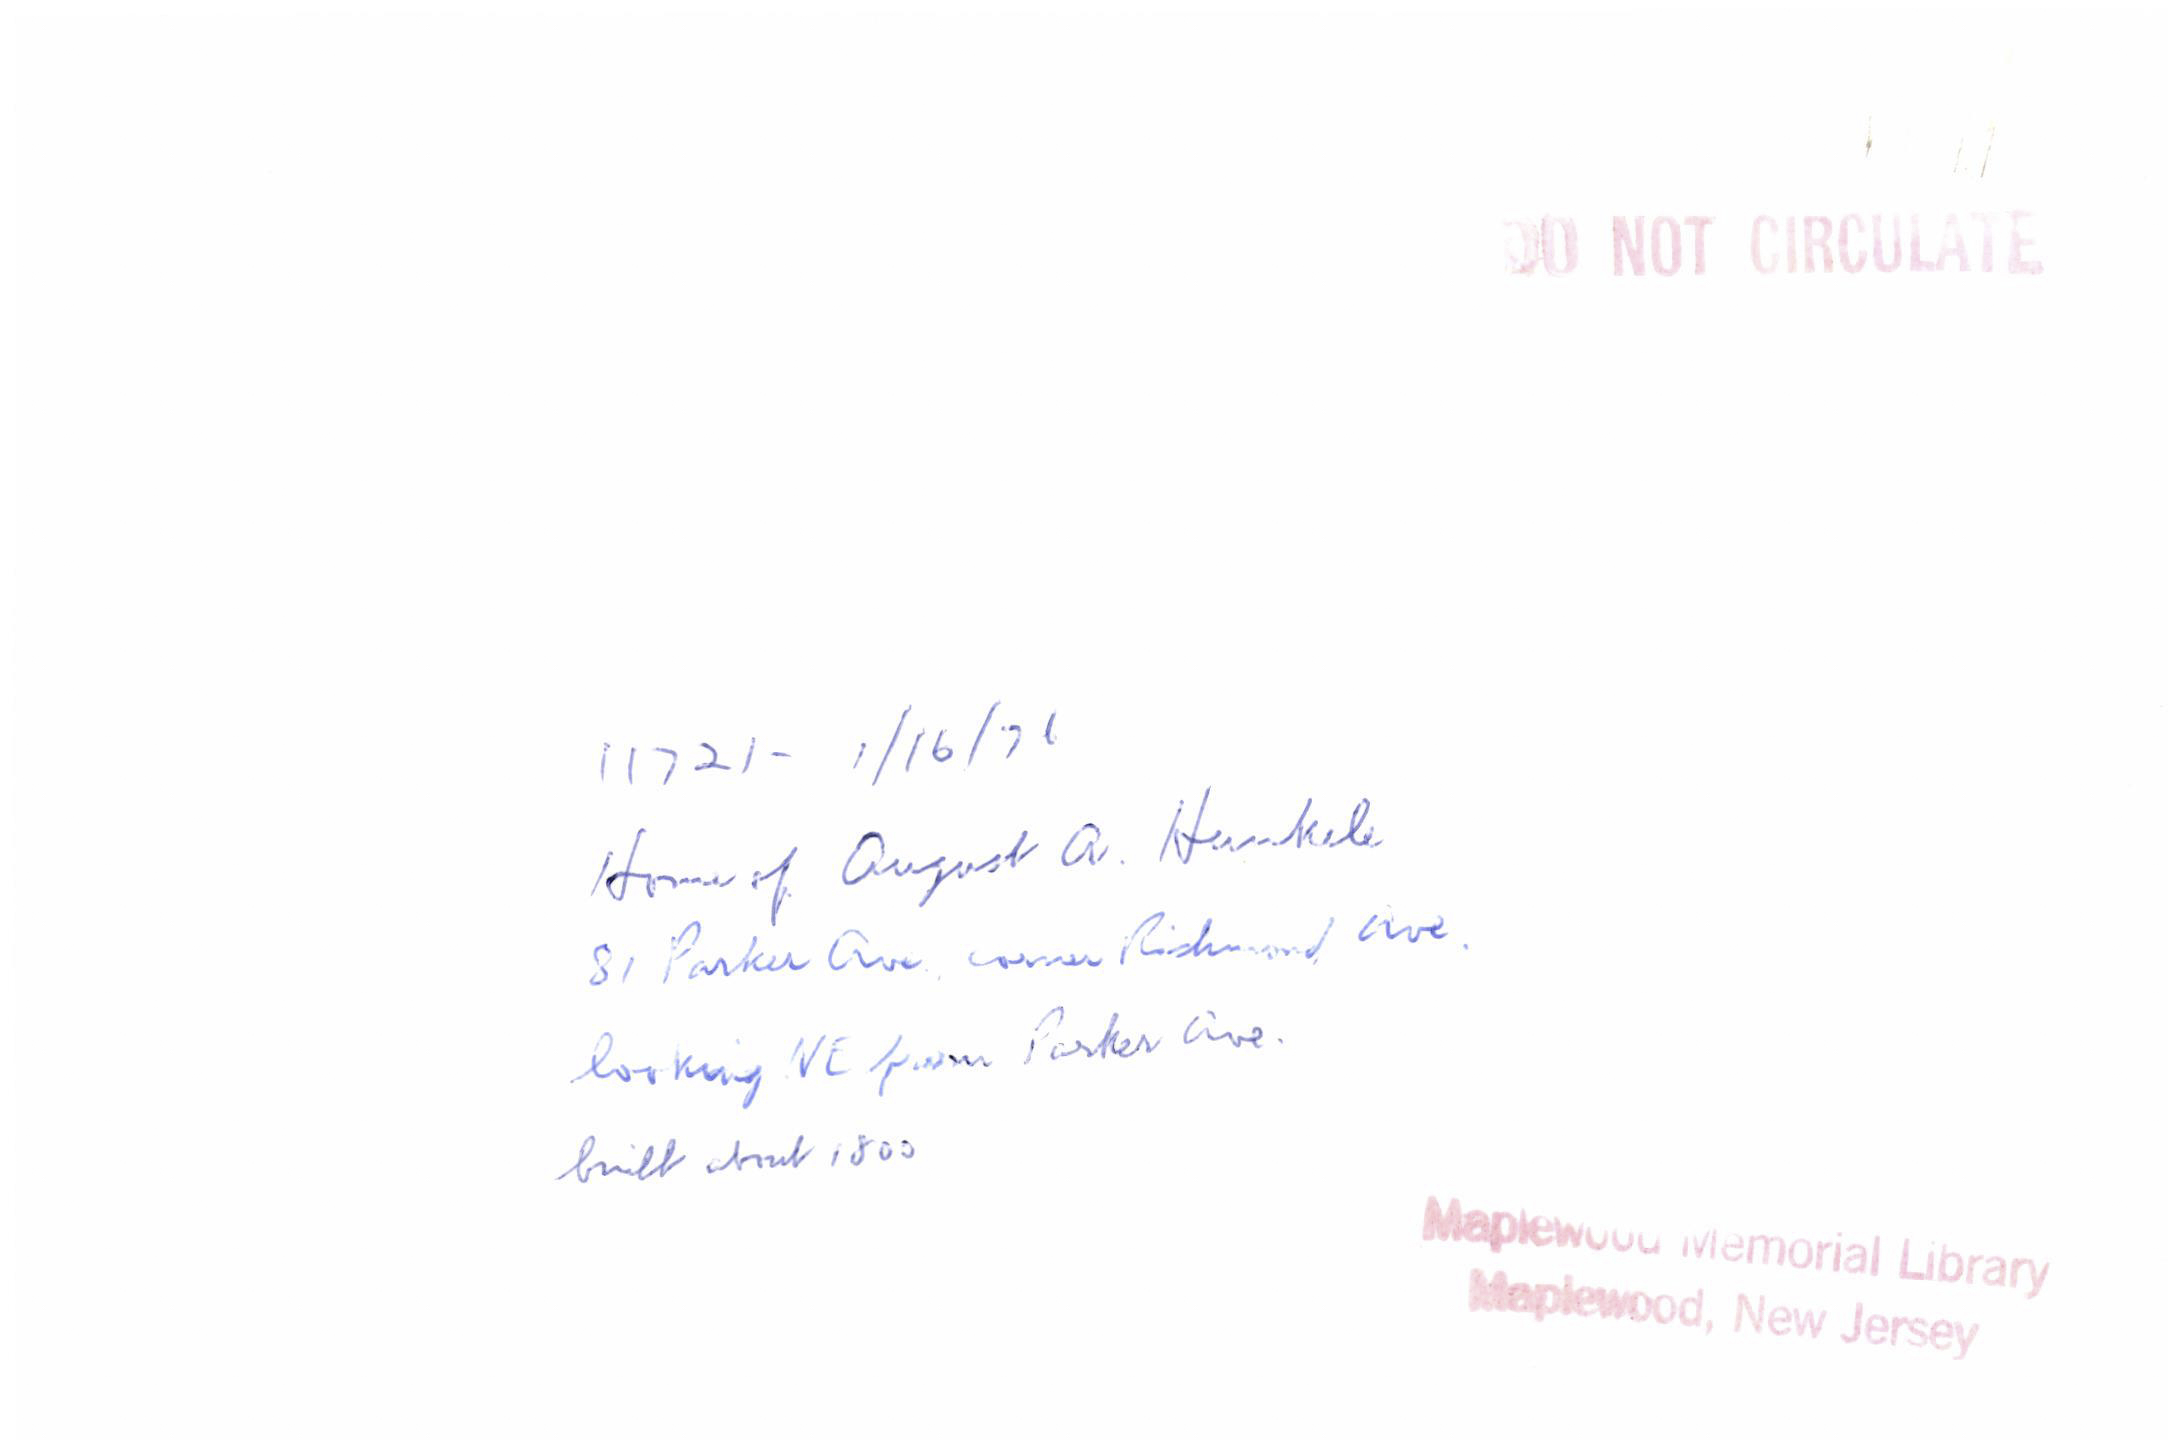 DO NOT CIRCULATE
11721- 1/16/76
Home of August A. Hunkele
81 Parker Ave. corner Richmond Ave.
looking NE from Parker Ave.
built about 1800
Maplewood Memorial Library
Maplewood, New Jersey